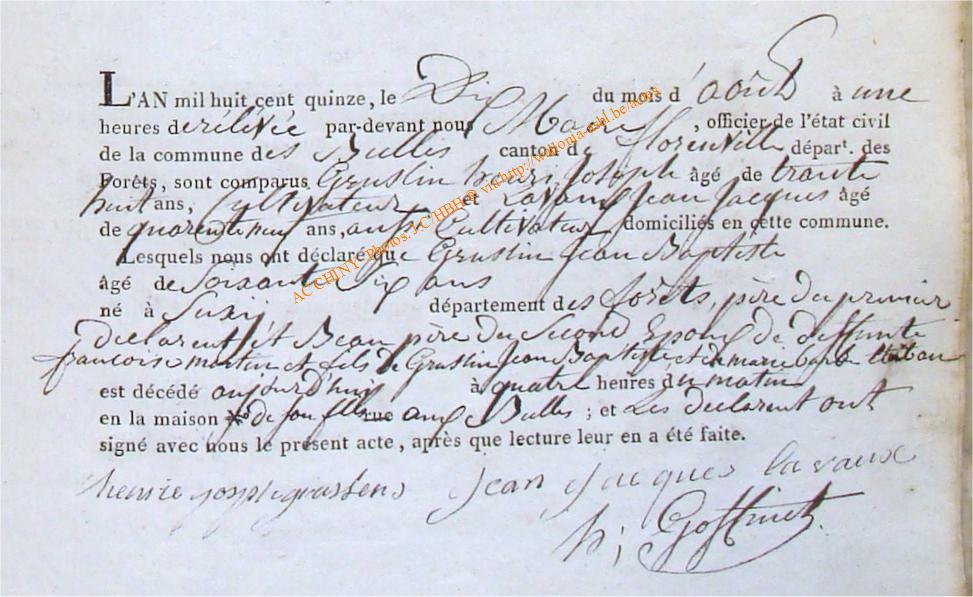 L'AN mil huit cent quinze, le Dix du mois d'août à une
heures de rélévée par-devant nous Maire, officier de l'état civil
de la commune des Bulles canton de florenville départ. des
Forêts, sont comparus Gruslin henri joseph âgé de trante
huit ans, Cultivateur et Lavaux Jean Jacques âgé
de quarente neuf ans, aussi Cultivateur domiciliés en cette commune.
Lesquels nous ont déclaré que Gruslin Jean Baptiste
âgé de Soixante Six ans
né à Suxij département des forêts, père du premier
declarent et Beau père du Second Epoux de deffunte
francoise martin et fils de Gruslin Jean Baptiste et de marie
est décédé aujourd'huij à quatre heures du matin
en la maison N.o de son fils rue aux Bulles ; et Les declarent ont
signé avec nous le présent acte, après que lecture leur en a été faite.
henrie josph gruslens Jean Jacques lavaux
h; Goffinet
AC CHINY - Photos: J.C HBH © via http://wallonia-asbl.be/actes